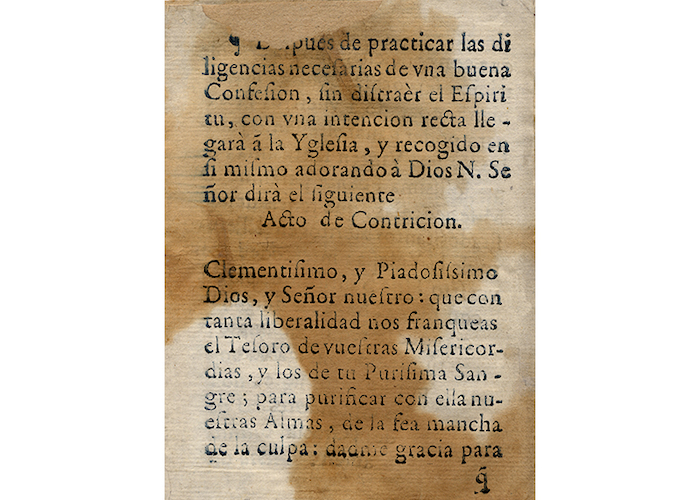 ¶ Despues de practicar las di
ligencias neceſarias de vna buena
Confeſion, ſin diſtraèr el Eſpiri
tu, con vna intencion recta lle-
garà ã la Ygleſia, y recogido en
ſi miſmo adorando à Dios N. Se
ñor dirà el ſiguiente
Acto de Contricion.
Clementiſimo, y Piadoſiſsimo
Dios, y Señor nueſtro: que con
tanta liberalidad nos franqueas
el Teſoro de vueſtras Miſericor-
dias, y los de tu Puriſima San-
gre; para purificar con ella nu-
eſtras Almas, de la fea mancha
de la culpa: dadme gracia para
q̃